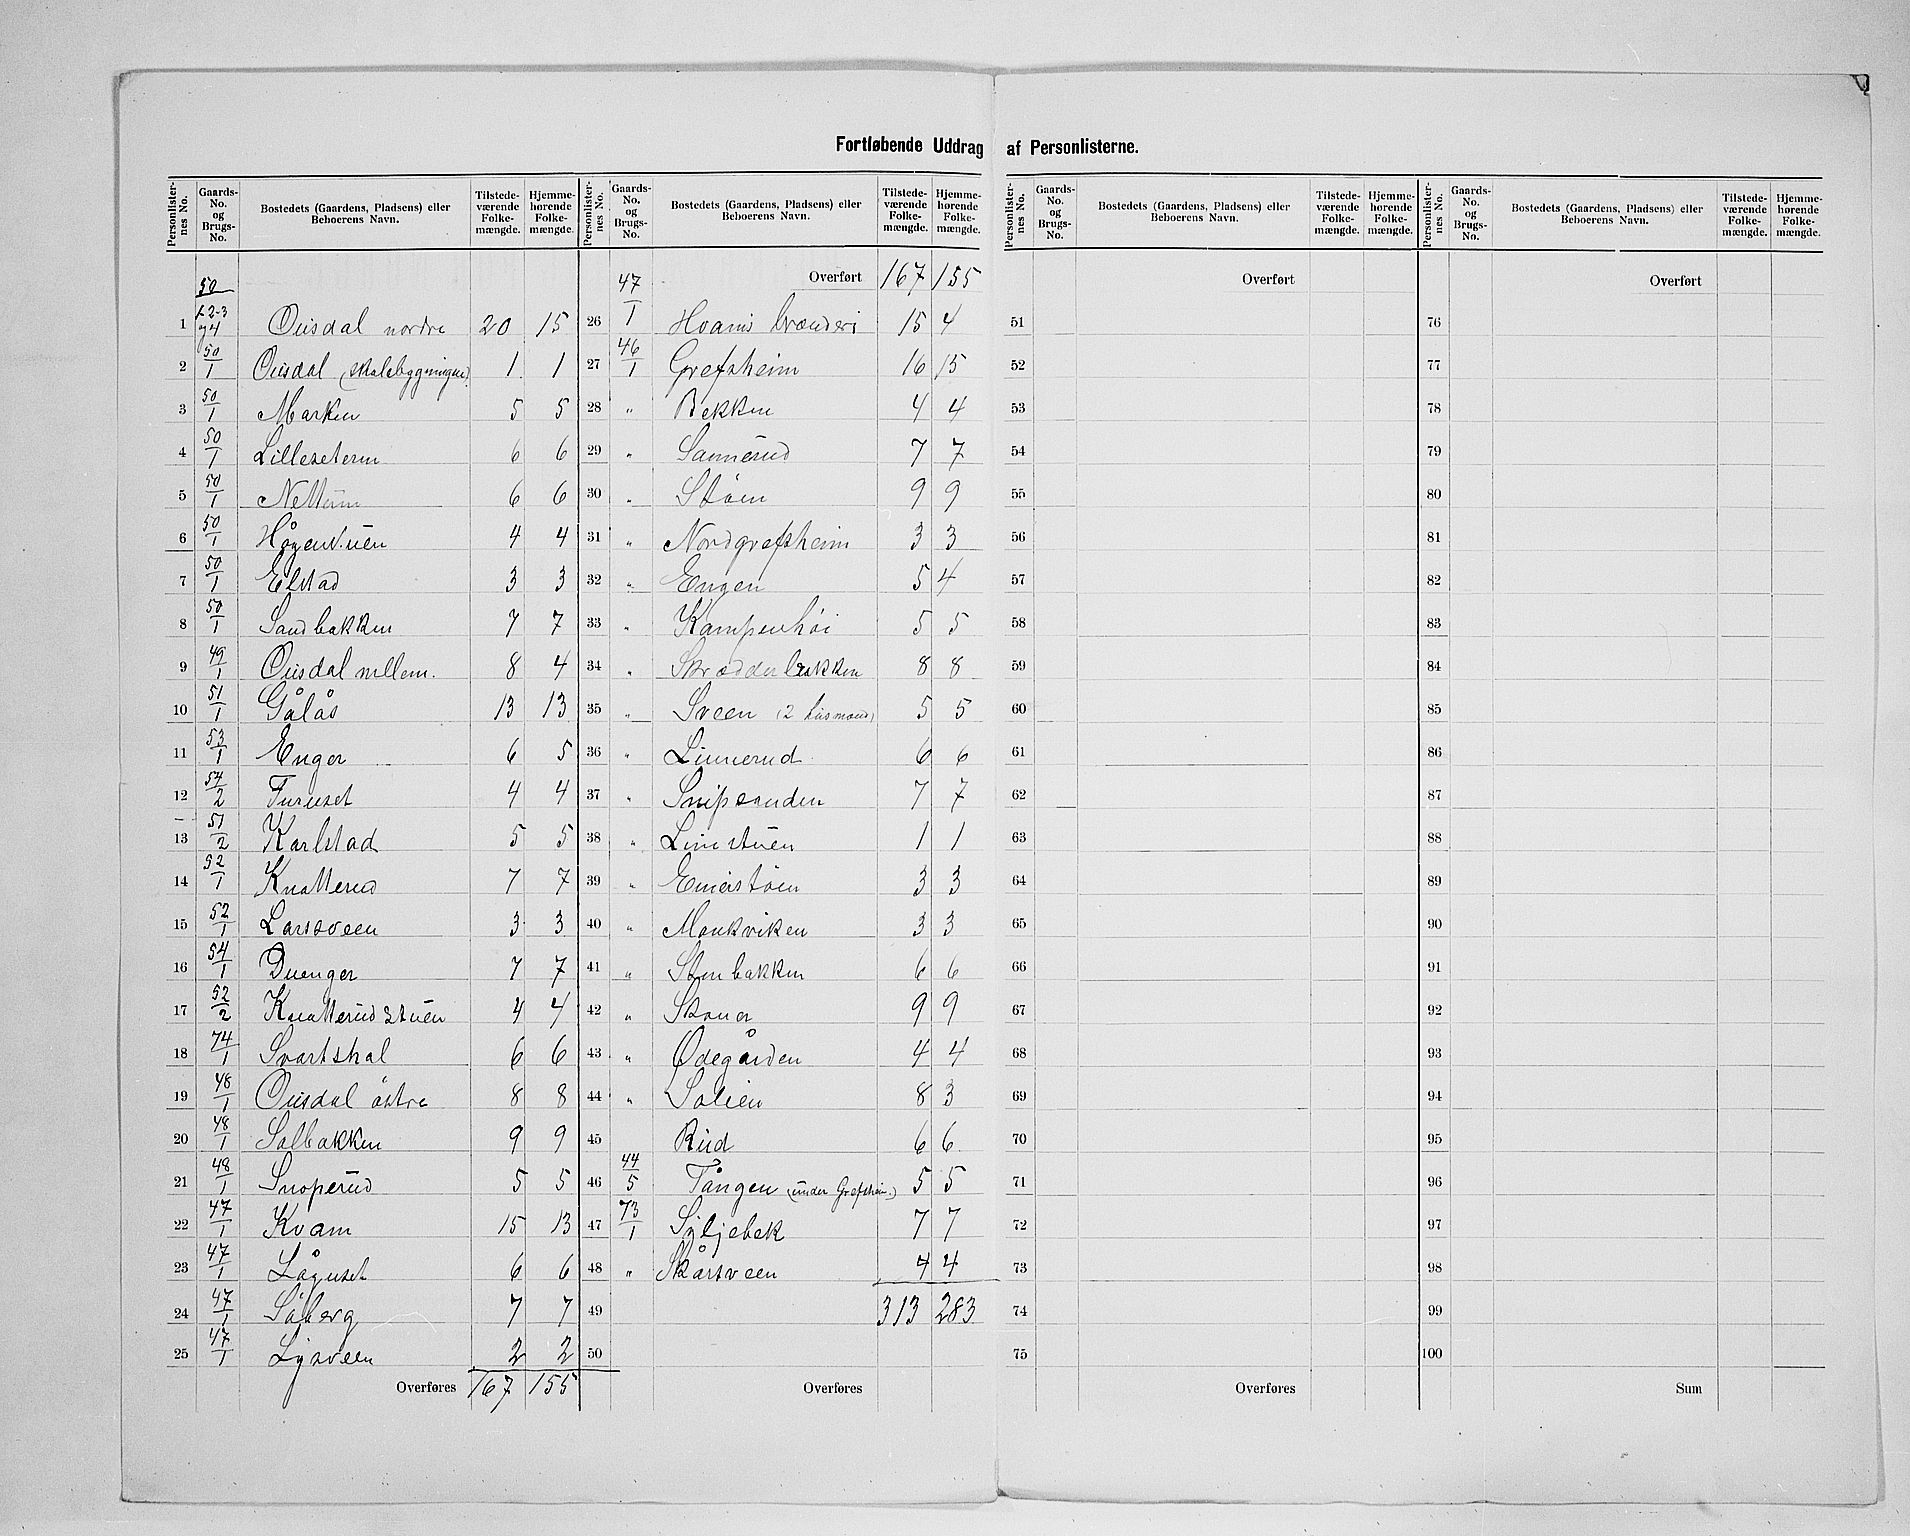 Fortløbende Uddrag af Personlisterne.
Personlisternes No. | Gaards-No. og Brugs-No. | Bostedets (Gaardens, Pladsens) eller Beboerens Navn. | Tilstedeværende Folkemængde. | Hjemmehørende Folkemængde.
1 | 50/1-2-3 g 4 | Ousdal nordre | 20 | 15
2 | 50/1 | Ousdal (skolebygningen) | 1 | 1
3 | 50/1 | Marken | 5 | 5
4 | 50/1 | Lilleseteren | 6 | 6
5 | 50/1 | Nettum | 6 | 6
6 | 50/1 | Hågenstuen | 4 | 4
7 | 50/1 | Elstad | 3 | 3
8 | 50/1 | Sandbakken | 7 | 7
9 | 49/1 | Ousdal mellem. | 8 | 4
10 | 51/1 | Gålås | 13 | 13
11 | 53/1 | Enger | 6 | 5
12 | 54/2 | Furuset | 4 | 4
13 | 51/2 | Karlstad | 5 | 5
14 | 52/1 | Knatterud | 7 | 7
15 | 52/1 | Larssveen | 3 | 3
16 | 54/1 | Duenger | 7 | 7
17 | 52/2 | Knatterudstuen | 4 | 4
18 | 74/1 | Svartshal | 6 | 6
19 | 48/1 | Ousdal östre | 8 | 8
20 | 48/1 | Solbakken | 9 | 9
21 | 48/1 | Snoperud | 5 | 5
22 | 47/1 | Kvam | 15 | 13
23 | 47/1 | Låguset | 6 | 6
24 | 47/1 | Såberg | 7 | 7
25 | 47/1 | Lysveen | 2 | 2
Overføres | 167 | 155
Personlisternes No. | Gaards-No. og Brugs-No. | Bostedets (Gaardens, Pladsens) eller Beboerens Navn. | Tilstedeværende Folkemængde. | Hjemmehørende Folkemængde.
Overført | 167 | 155
26 | 47/1 | Hoams brænderi | 15 | 4
27 | 46/1 | Grefsheim | 16 | 15
28 | " | Bekken | 4 | 4
29 | " | Sannerud | 7 | 7
30 | " | Støen | 9 | 9
31 | " | Nordgrefsheim | 3 | 3
32 | " | Engen | 5 | 4
33 | " | Kampenhøi | 5 | 5
34 | " | Skrædderbakken | 8 | 8
35 | " | Sveen (2 husmænd) | 5 | 5
36 | " | Linnerud | 6 | 6
37 | " | Snipsanden | 7 | 7
38 | " | Linistuen | 1 | 1
39 | " | Emerstøen | 3 | 3
40 | " | Monkviken | 3 | 3
41 | " | Stenbakken | 6 | 6
42 | " | Skouer | 9 | 9
43 | " | Ødegården | 4 | 4
44 | " | Solien | 8 | 3
45 | Rud | 6 | 6
46 | 44/5 | Tången (under Grefsheim.) | 5 | 5
47 | 73/1 | Syljebek | 7 | 7
48 | " | Skårsveen | 4 | 4
49 | 313 | 283
50
Overføres
Personlisternes No. | Gaards-No. og Brugs-No. | Bostedets (Gaardens, Pladsens) eller Beboerens Navn. | Tilstedeværende Folkemængde. | Hjemmehørende Folkemængde.
Overført
51
52
53
54
55
56
57
58
59
60
61
62
63
64
65
66
67
68
69
70
71
72
73
74
75
Overføres
Personlisternes No. | Gaards-No. og Brugs-No. | Bostedets (Gaardens, Pladsens) eller Beboerens Navn. | Tilstedeværende Folkemængde. | Hjemmehørende Folkemængde.
Overført
76
77
78
79
80
81
82
83
84
85
86
87
88
89
90
91
92
93
94
95
96
97
98
99
100
Sum